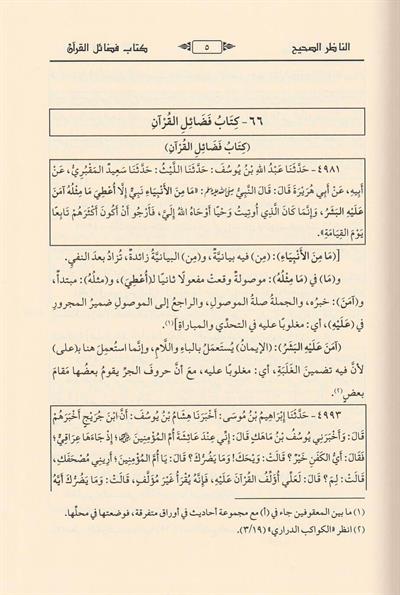 الناظر الصحيح ٥ كتاب فضائل القرآن
٦٦- كِتَابُ فَضَائِلِ القُرْآنِ
(كِتَابُ فَضَائِلِ القُرْآنِ)
٤٩٨١- حَدَّثَنَا عَبْدُ اللهِ بْنُ يُوسُفَ: حَدَّثَنَا اللَّيْثُ: حَدَّثَنَا سَعِيدٌ المَقْبُرِيُّ، عَنْ
أَبِيهِ، عَنْ أَبِي هُرَيْرَةَ قَالَ: قَالَ النَّبِيُّ ﷺ: «مَا مِنَ الأَنْبِيَاءِ نَبِيٌّ إِلَّا أُعْطِيَ مَا مِثْلُهُ آمَنَ
عَلَيْهِ البَشَرُ، وَإِنَّمَا كَانَ الَّذِي أُوتِيتُ وَحْيًا أَوْحَاهُ اللهُ إِلَيَّ، فَأَرْجُو أَنْ أَكُونَ أَكْثَرَهُمْ تَابِعًا
يَوْمَ القِيَامَةِ».
[(مَا مِنَ الأَنْبِيَاءِ): (مِن) فيه بيانيَّة، و(مِن) البيانيَّة زائدة، تُزادُ بعدَ النفي.
و(مَا) في (مَا مِثْلُهُ): موصولةٌ وقعتْ مفعولًا ثانيًا لـ(أُعْطِيَ)، و(مثلُهُ): مبتدأ،
و(آمَنَ): خبرُه، والجملةُ صلةُ الموصولِ، والراجعُ إلى الموصولِ ضميرُ المجرورِ
في (عَلَيْهِ)، أي: مغلوبًا عليه في التحدِّي والمباراة](١).
(آمَنَ عَلَيْهِ البَشَرُ): (الإيمانُ) يُستَعمَلُ بالباءِ واللَّامِ، وإنَّما استُعمِلَ هنا بـ(على)
لأنَّ فيه تضمينَ الغَلَبَةِ، أي: مغلوبًا عليه، مع أنَّ حروفَ الجرِّ يقومُ بعضُها مَقامَ
بعضٍ(٢).
٤٩٩٣- حَدَّثَنَا إِبْرَاهِيمُ بْنُ مُوسَى: أَخْبَرَنَا هِشَامُ بْنُ يُوسُفَ: أَنَّ ابْنَ جُرَيْجٍ أَخْبَرَهُمْ
قَالَ: وَأَخْبَرَنِي يُوسُفُ بْنُ مَاهَكَ قَالَ: إِنِّي عِنْدَ عَائِشَةَ أُمِّ المُؤْمِنِينَ إِذْ جَاءَهَا عِرَاقِيٌّ؛
فَقَالَ: أَيُّ الكَفَنِ خَيْرٌ؟ قَالَتْ: وَيْحَكَ! وَمَا يَضُرُّكَ؟ قَالَ: يَا أُمَّ المُؤْمِنِينَ؛ أَرِينِي مُصْحَفَكِ،
قَالَتْ: لِمَ؟ قَالَ: لَعَلِّي أُؤَلِّفُ القُرْآنَ عَلَيْهِ، فَإِنَّهُ يُقْرَأُ غَيْرَ مُؤَلَّفٍ، قَالَتْ: وَمَا يَضُرُّكَ أَيَّهُ
(١) ما بين المعقوفين جاء في (أ) مع مجموعة أحاديث في أوراق متفرقة، فوضعتها في محلِّها.
(٢) انظر «الكواكب الدراري» (٣/١٩).